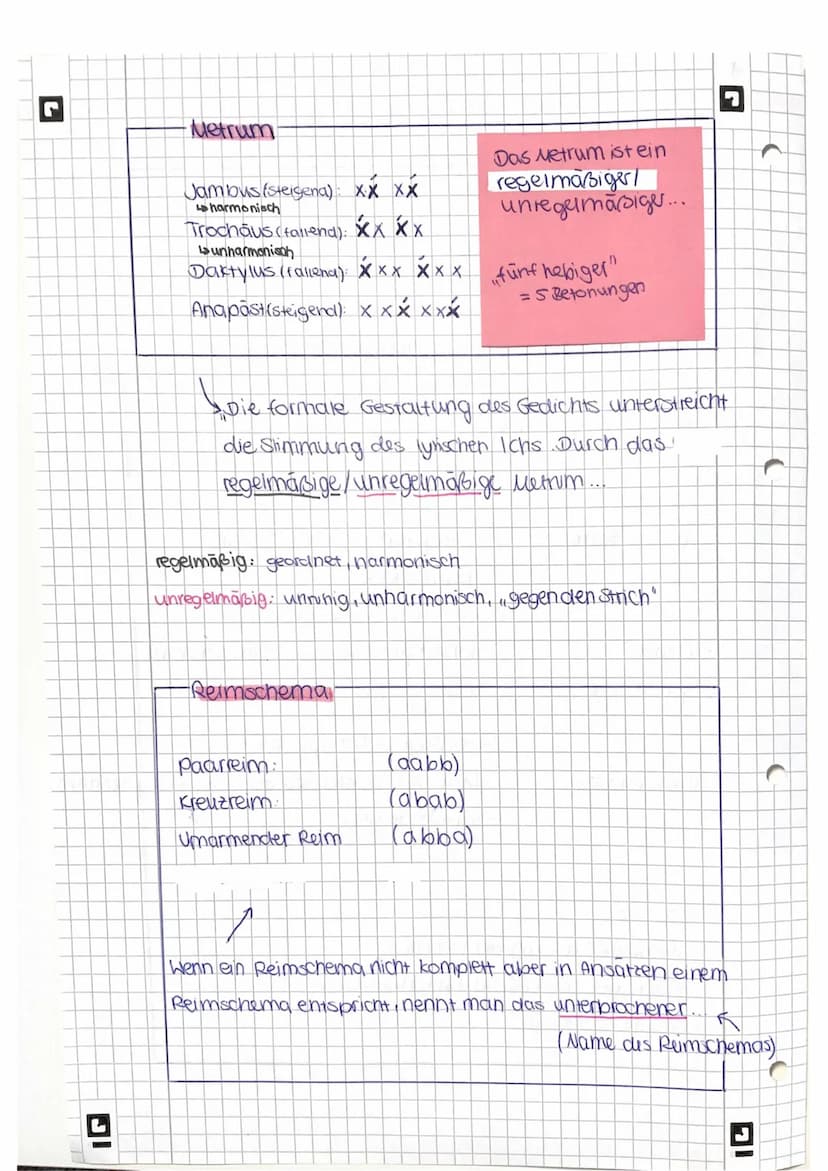 Metrum
Jambus (steigend): xx́ xx́
↳ harmonisch
Trochäus (fallend): x́x x́x
↳ unharmonisch
Daktylus (fallend): x́xx x́xx
Anapäst (steigend): xxx́ xxx́
Das Metrum ist ein
regelmäßiger/
unregelmäßiger...
„fünfhebiger"
= 5 Betonungen
„Die formale Gestaltung des Gedichts unterstreicht
die Stimmung des lyrischen Ichs. Durch das
regelmäßige/unregelmäßige Metrum...
regelmäßig: geordnet, harmonisch
unregelmäßig: unruhig, unharmonisch, „gegen den Strich"
Reimschema
Paarreim: (aabb)
Kreuzreim: (abab)
Umarmender Reim (abba)
Wenn ein Reimschema nicht komplett aber in Ansätzen einem
Reimschema entspricht, nennt man das unterbrochener...
(Name des Reimschemas)